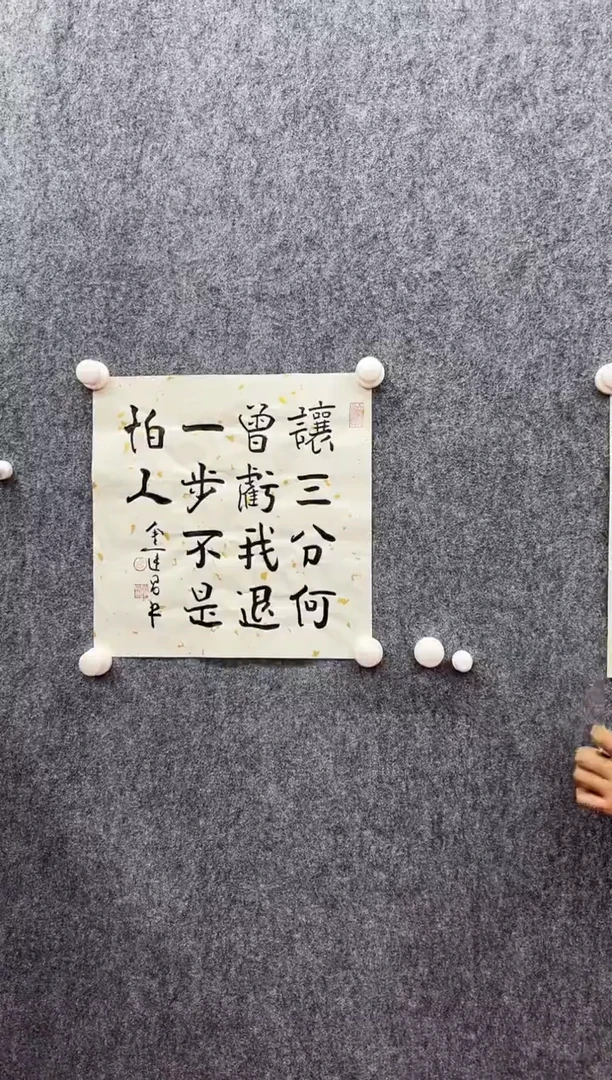 讓三分何
曾虧我退
一步不是
怕人
金连昌书